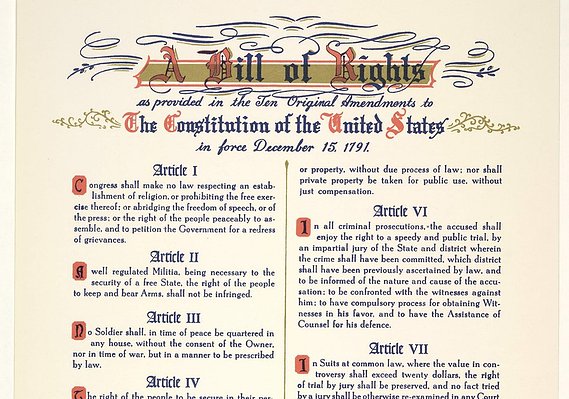 A Bill of Rights
as provided in the Ten Original Amendments to
The Constitution of the United States
in force December 15, 1791.
Article I
Congress shall make no law respecting an estab-
lishment of religion, or prohibiting the free exer-
cise thereof; or abridging the freedom of speech, or of
the press; or the right of the people peaceably to as-
semble, and to petition the Government for a redress
of grievances.
Article II
A well regulated Militia, being necessary to the
security of a free State, the right of the people
to keep and bear Arms, shall not be infringed.
Article III
No Soldier shall, in time of peace be quartered in
any house, without the consent of the Owner,
nor in time of war, but in a manner to be prescribed
by law.
Article IV
The right of the people to be secure in their per-
or property, without due process of law; nor shall
private property be taken for public use, without
just compensation.
Article VI
In all criminal prosecutions, the accused shall
enjoy the right to a speedy and public trial, by
an impartial jury of the State and district wherein
the crime shall have been committed, which district
shall have been previously ascertained by law, and
to be informed of the nature and cause of the accu-
sation; to be confronted with the witnesses against
him; to have compulsory process for obtaining Wit-
nesses in his favor, and to have the Assistance of
Counsel for his defence.
Article VII
In Suits at common law, where the value in con-
troversy shall exceed twenty dollars, the right
of trial by jury shall be preserved, and no fact tried
by a jury shall be otherwise re-examined in any Court